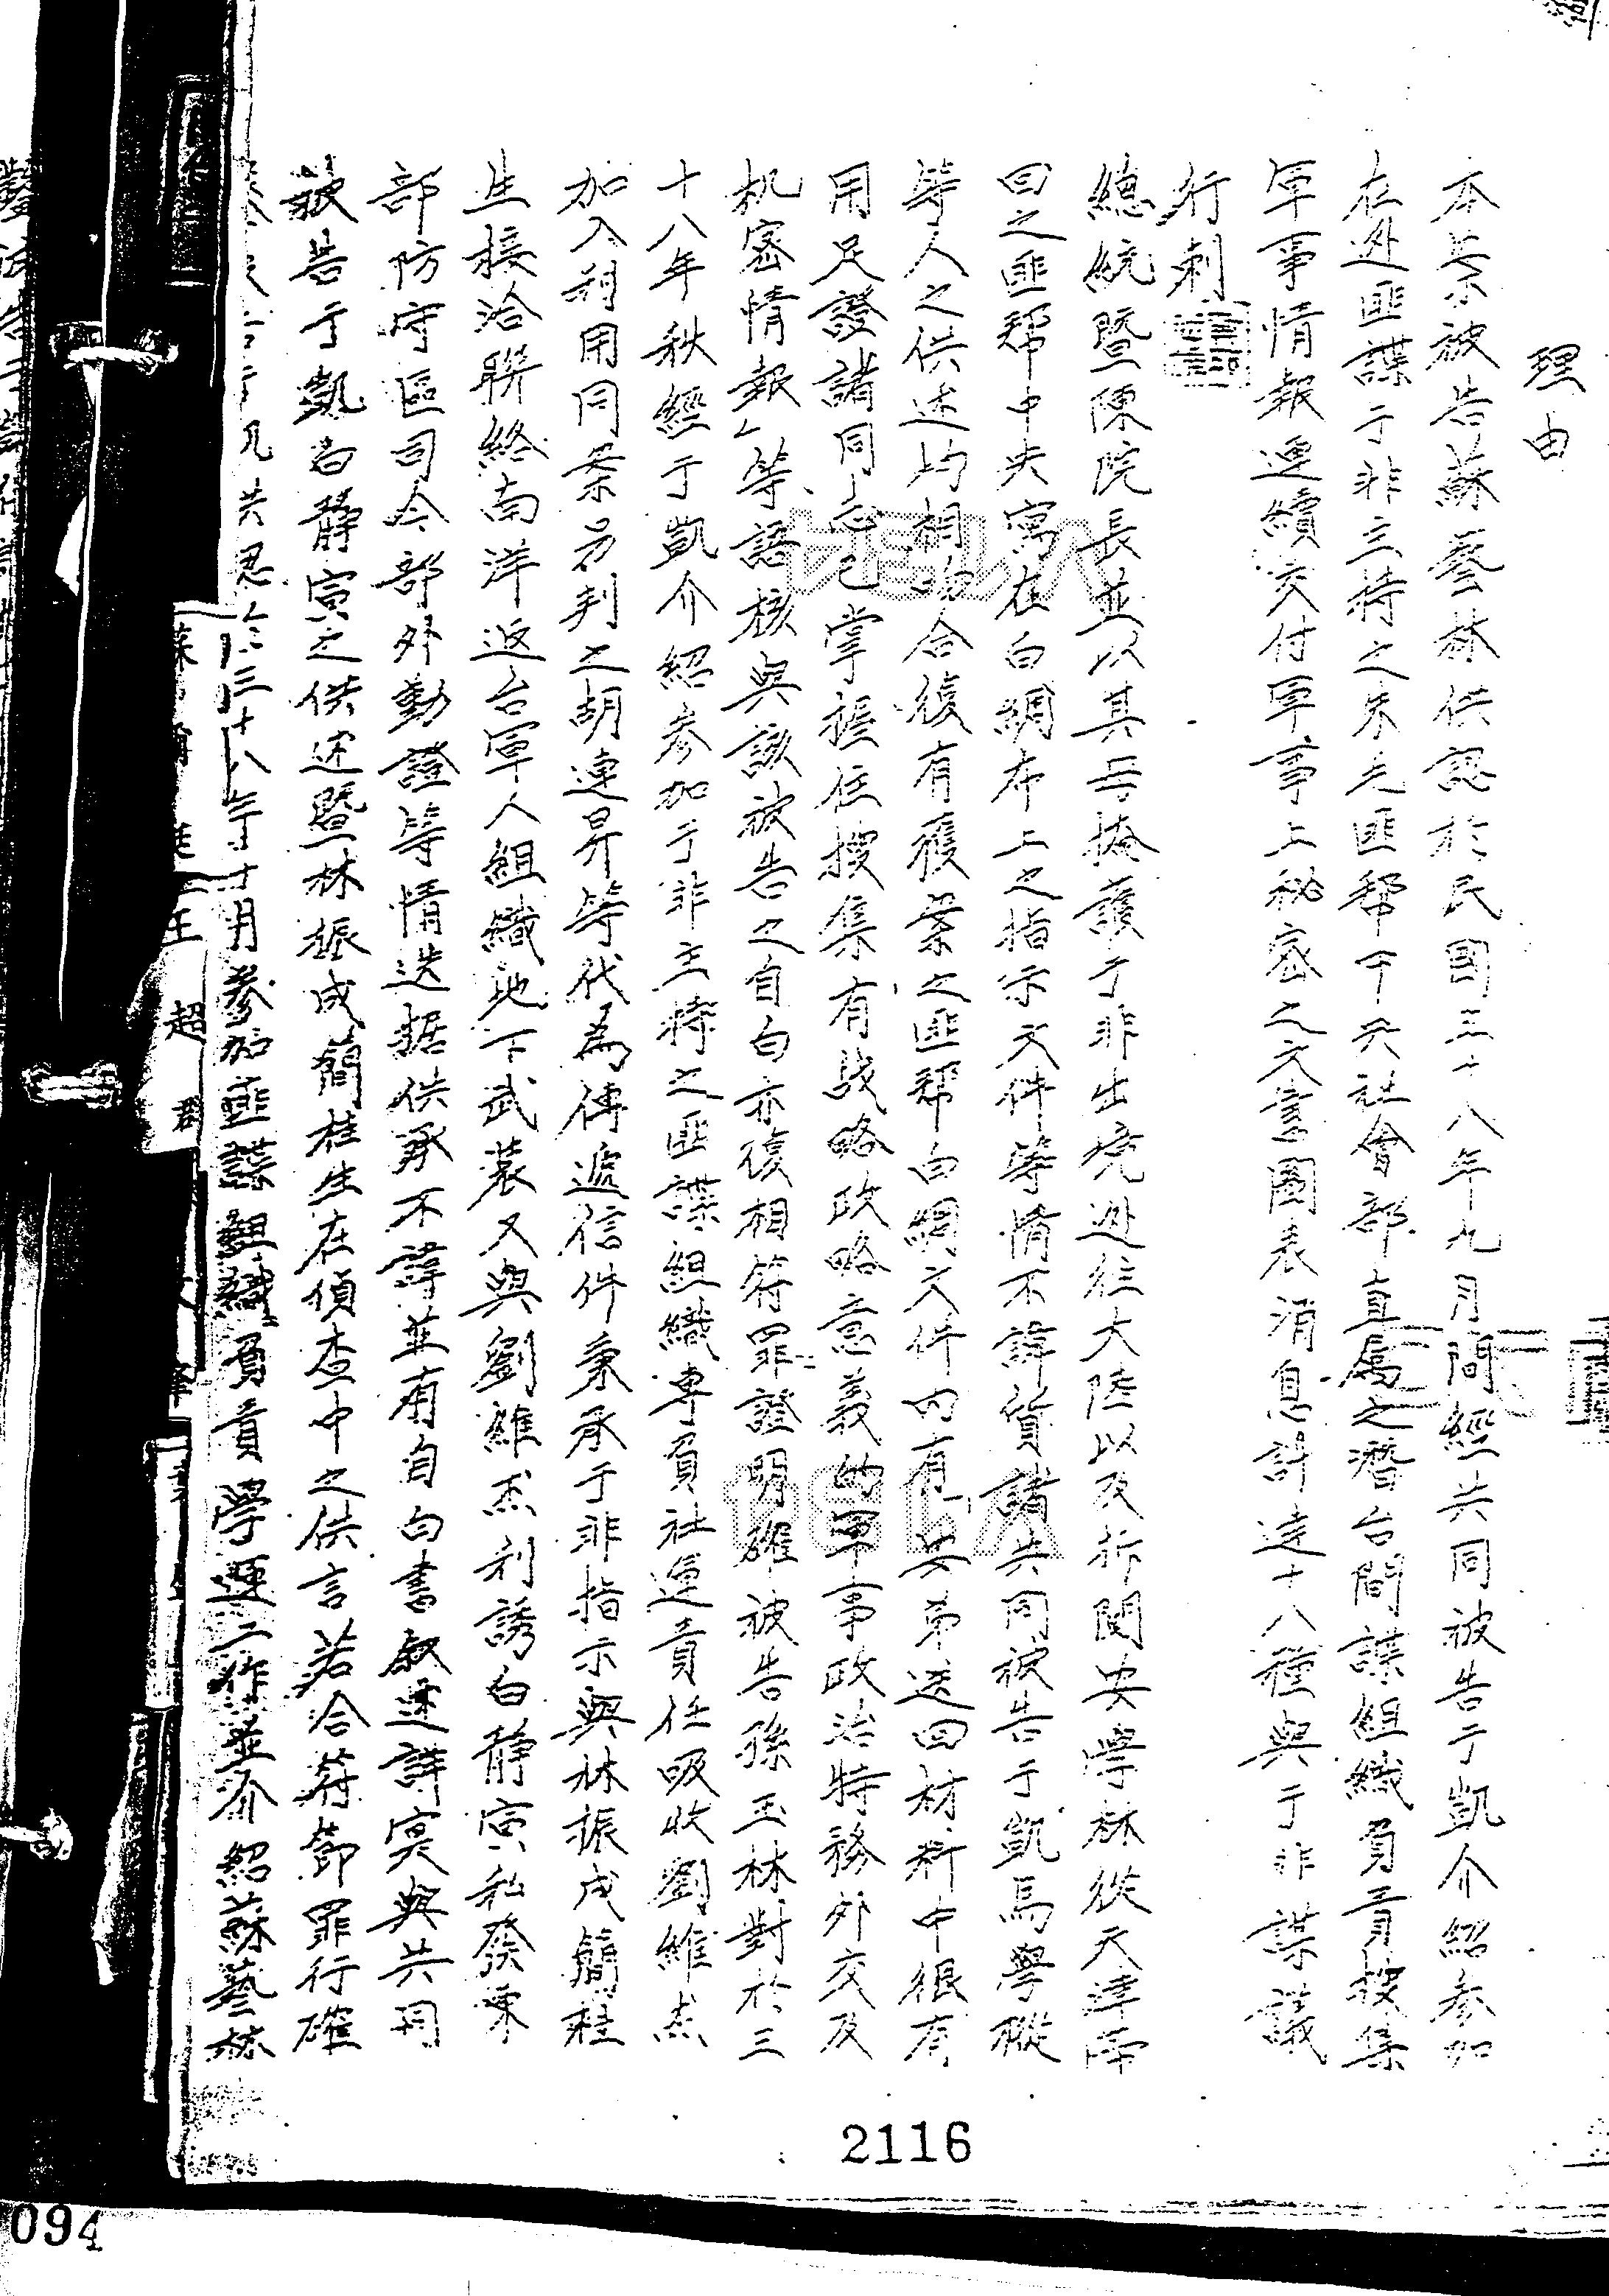 理由
本案被告蘇藝林供認於民國三十八年九月間經共同被告于凱介紹參加
在逃匪諜于非主持之朱毛匪幫中央社會部直屬之潛台間諜組織負責搜集
軍事情報連續交付軍事上秘密之文書圖表消息計達十八種與于非謀議
行刺
總統暨陳院長並以其女掩護于非出境逃往大陸以及拆閱安學林從天津帶
回之匪幫中央寫在白綢布上之指示文件等情不諱質諸共同被告于凱馬學樅
等人之供述均相吻合復有獲案之匪幫白綢文件內有「安弟送回材料中很有
用足證諸同志已掌握住搜集有战略政略意義的軍事政治特務外交及
机密情報」等語核與該被告之自白亦復相符罪證明確被告孫玉林對於三
十八年秋經于凱介紹參加于非主持之匪諜組織專負社運責任吸收劉維杰
加入利用同案另判之胡連昇等代為傳遞信件秉承于非指示與林振成簡桂
生接洽聯絡南洋返台軍人組織地下武裝又與劉維杰利誘白靜寅私發東
部防守區司令部外動證等情迭據供承不諱並有自白書敘述詳實與共同
被告于凱白靜寅之供述暨林振成簡桂生在偵查中之供言若合符節罪行確
三十八年十月參加匪諜組織負責學運工作並介紹蘇藝林
2116
094